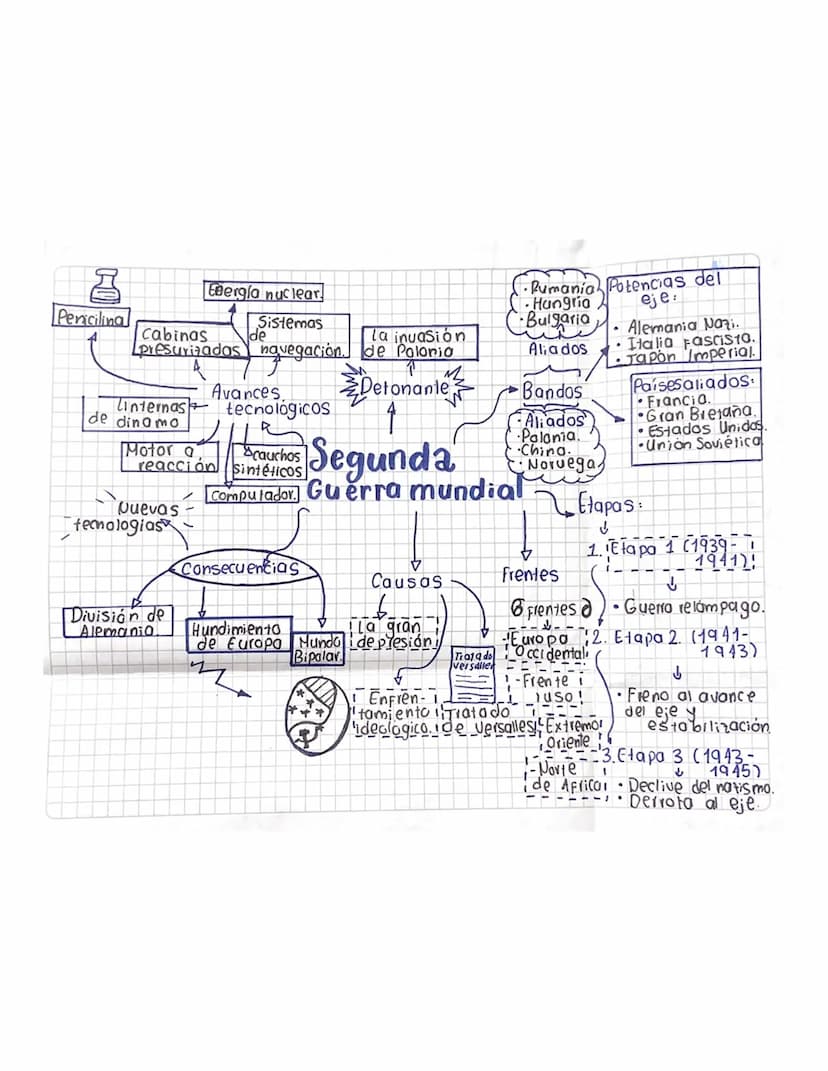 Penicilina
Energía nuclear.
Cabinas
presurizadas
Sistemas
de
navegación.
Avances
tecnológicos
Linternas
de dinamo
Motor a
reacción
cauchos
sintéticos
Computador.
La invasión
de Polonia
Detonante
Segunda
Guerra mundial
· Rumania
· Hungría
· Bulgaria
Aliados
Bandos
· Aliados
· Polonia.
· China.
· Noruega
Potencias del
eje:
• Alemania Nazi.
• Italia Fascista.
• Japón Imperial.
Paísesaliados:
• Francia.
• Gran Bretaña.
• Estados Unidos.
• Unión Soviética
Nuevas
tecnologías
Consecuencias
División de
Alemania.
Hundimiento
de Europa
Mundo
Bipolar.
Causas
La gran
depresión
Enfren-
tamiento
ideológico.
Tratado
Versalles
Tratado
de Versalles
Frentes
Frentes
- Europa
Occidental
- Frente
ruso
- Extremo
Oriente
- Norte
de Africa
Etapas:
1. Etapa 1 (1939-
1941)
• Guerra relámpago.
2. Etapa 2. (1941-
1943)
• Freno al avance
del eje y
estabilización
3. Etapa 3 (1943-
1945)
• Declive del natismo.
• Derrota al eje.